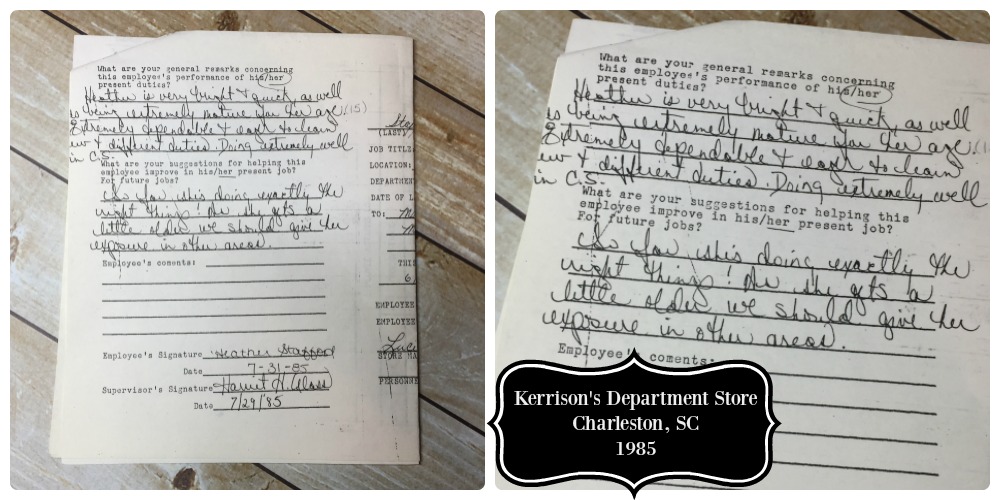 What are your general remarks concerning
this employee's performance of his/her
present duties?
Heather is very bright & quick, as well
as being extremely mature for her age (15)
Extremely dependable & eager to learn
new & different duties. Doing extremely well
in C.S.
What are your suggestions for helping this
employee improve in his/her present job?
For future jobs?
So far, she's doing exactly the
right thing! As she gets a
little older we should give her
exposure in other areas.
Employee's coments:
Employee's Signature Heather Stafford
Date 7-31-85
Supervisor's Signature Harriet H. Glass
Date 7/29/85
(LAST)
JOB TITLE
LOCATION:
DEPARTMENT
DATE OF L
TO:
THI
6
EMPLOYEE
EMPLOYEE
STORE MA
PERSONNE
What are your general remarks concerning
this employee's performance of his/her
present duties?
Heather is very bright & quick, as well
as being extremely mature for her age. (1
Extremely dependable & eager to learn
ew & different duties. Doing extremely well
in C.S.
What are your suggestions for helping this
employee improve in his/her present job?
For future jobs?
So far, she's doing exactly the
right thing! As she gets a
little older we should give her
exposure in other areas.
Employee's coments:
Kerrison's Department Store
Charleston, SC
1985